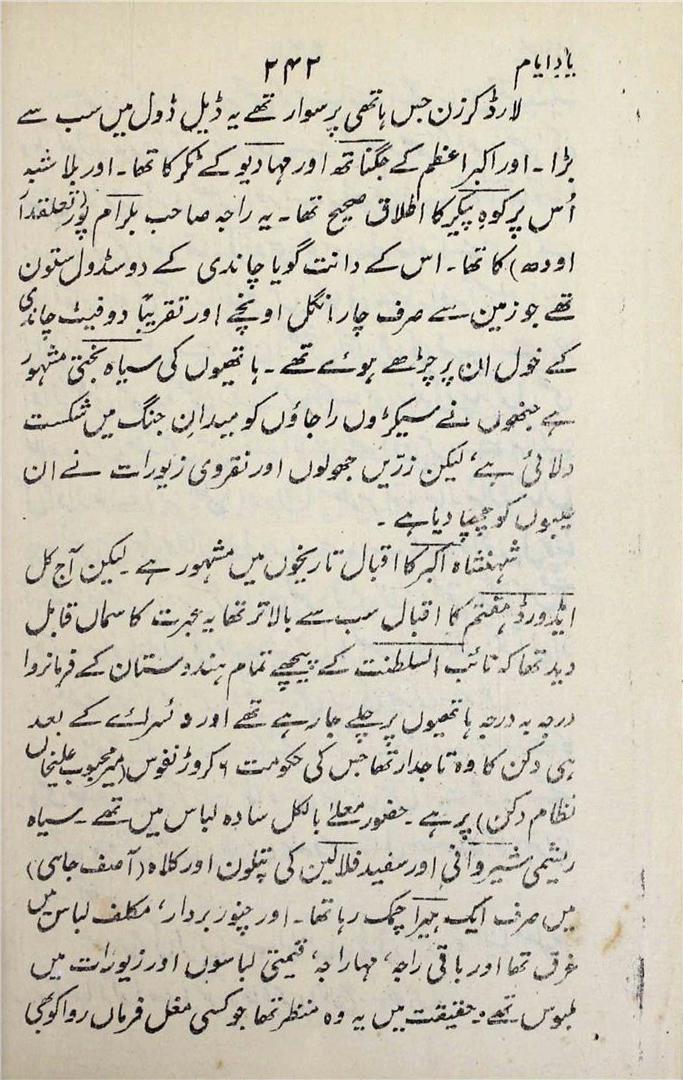 یادِ ایام
۲۴۲
لارڈ کرزن جس ہاتھی پر سوار تھے یہ ڈیل ڈول میں سب سے
بڑا ۔ اور اکبر اعظم کے جگناتھ اور مہادیو کے ٹکر کا تھا ۔ اور بلا شبہ
اُس پر کوہ پیکر کا اطلاق صحیح تھا ۔ یہ راجہ صاحب بلرام پور (تعلقدار
اودھ) کا تھا ۔ اس کے دانت گویا چاندی کے دو سڈول ستون
تھے جو زمین سے صرف چار انگل اونچے اور تقریباً دو فیٹ چاندی
کے خول ان پر چڑھے ہوئے تھے ۔ ہاتھیوں کی سیاہ بختی مشہور
ہے جنھوں نے سیکڑوں راجاؤں کو میدانِ جنگ میں شکست
دلائی ہے، لیکن زرّیں جھولوں اور نقروی زیورات نے ان
عیبوں کو چھپا دیا ہے ۔
شہنشاہ اکبر کا اقبال تاریخوں میں مشہور ہے ۔ لیکن آج کل
ایڈورڈ ہفتم کا اقبال سب سے بالاتر تھا یہ عبرت کا سماں قابل
دید تھا کہ نائب السلطنت کے پیچھے تمام ہندوستان کے فرمانروا
درجہ بہ درجہ ہاتھیوں پر چلے جا رہے تھے اور وئسرائے کے بعد
ہی دکن کا وہ تاجدار تھا جس کی حکومت ۶ کروڑ نفوس (میر محبوب علیخاں
نظام دکن) پر ہے ۔ حضور معلےٰ بالکل سادہ لباس میں تھے ۔ سیاہ
ریشمی شیروانی اور سفید فلالین کی پتلون اور کلاہ (آصف جاہی)
میں صرف ایک ہیرا چمک رہا تھا ۔ اور چنور بردار، مکلف لباس میں
غرق تھا اور باقی راجہ، مہاراجہ، قیمتی لباسوں اور زیورات میں
ملبوس تھے ۔ حقیقت میں یہ وہ منظر تھا جو کسی مغل فرماں روا کو بھی